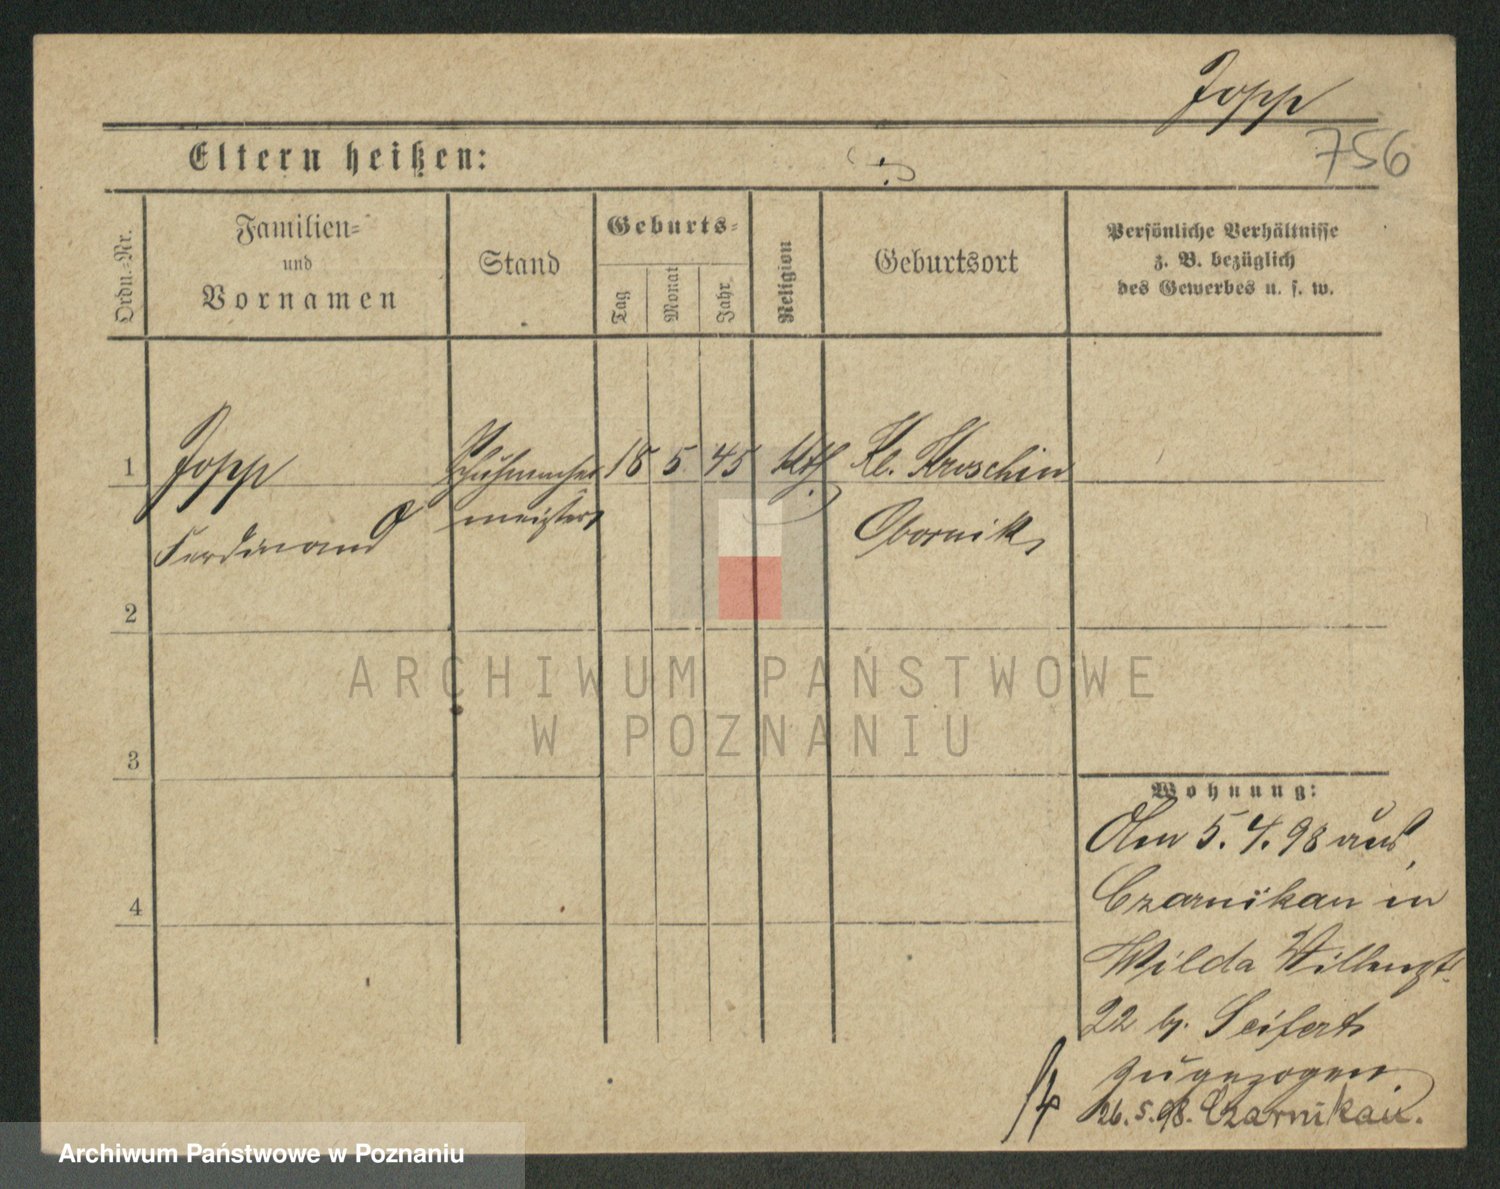 Jopp
756
Eltern heißen:
Ordn.-Nr.
Familien-
und
Vornamen
Stand
Geburts-
Tag
Monat
Jahr
Religion
Geburtsort
Persönliche Verhältnisse
z. B. bezüglich
des Gewerbes u. s. w.
1
Jopp
Schuhmacher
18
5
45
Kl. Kroschin
Ferdinand
meister
Obornik
2
3
4
ARCHIWUM PAŃSTWOWE
W POZNANIU
Wohnung:
Am 5.4.98 aus
Czarnikau in
Wilda
22 b. Seifert
zugezogen.
26.5.98. Czarnikau.
Archiwum Państwowe w Poznaniu